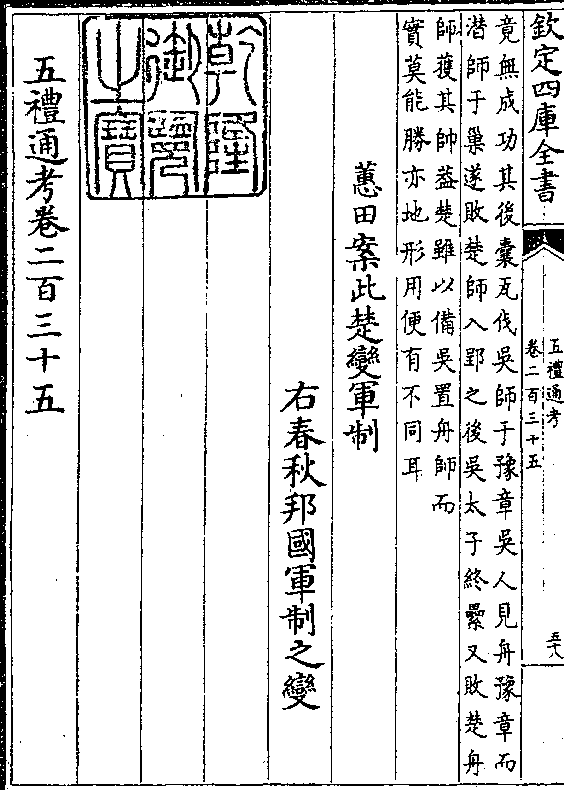 欽定四庫全書
五禮通考
卷二百三十五
五十八
竟無成功其後囊瓦伐吳師于豫章吳人見舟豫章而
潛師于巢遂敗楚師入郢之後吳太子終纍又敗楚舟
師獲其帥葢楚雖以備吳置舟師而
實莫能勝亦地形用便有不同耳
蕙田案此楚變軍制
右春秋邦國軍制之變
乾隆
御覽
之寶
五禮通考卷二百三十五